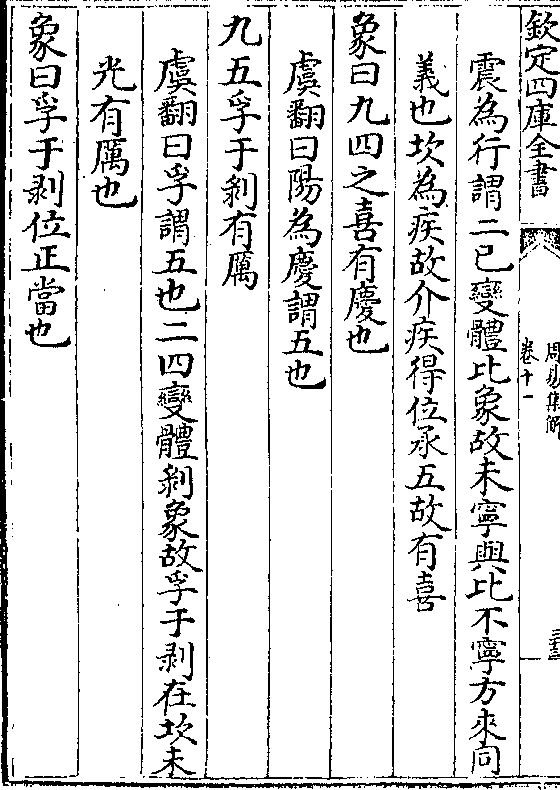 欽定四庫全書
周易集解
卷十一
三十三
震為行謂二已變體比象故未寧與比不寧方來同
義也坎為疾故介疾得位承五故有喜
象曰九四之喜有慶也
虞翻曰陽為慶謂五也
九五孚于剝有厲
虞翻曰孚謂五也二四變體剝象故孚于剝在坎未
光有厲也
象曰孚于剥位正當也